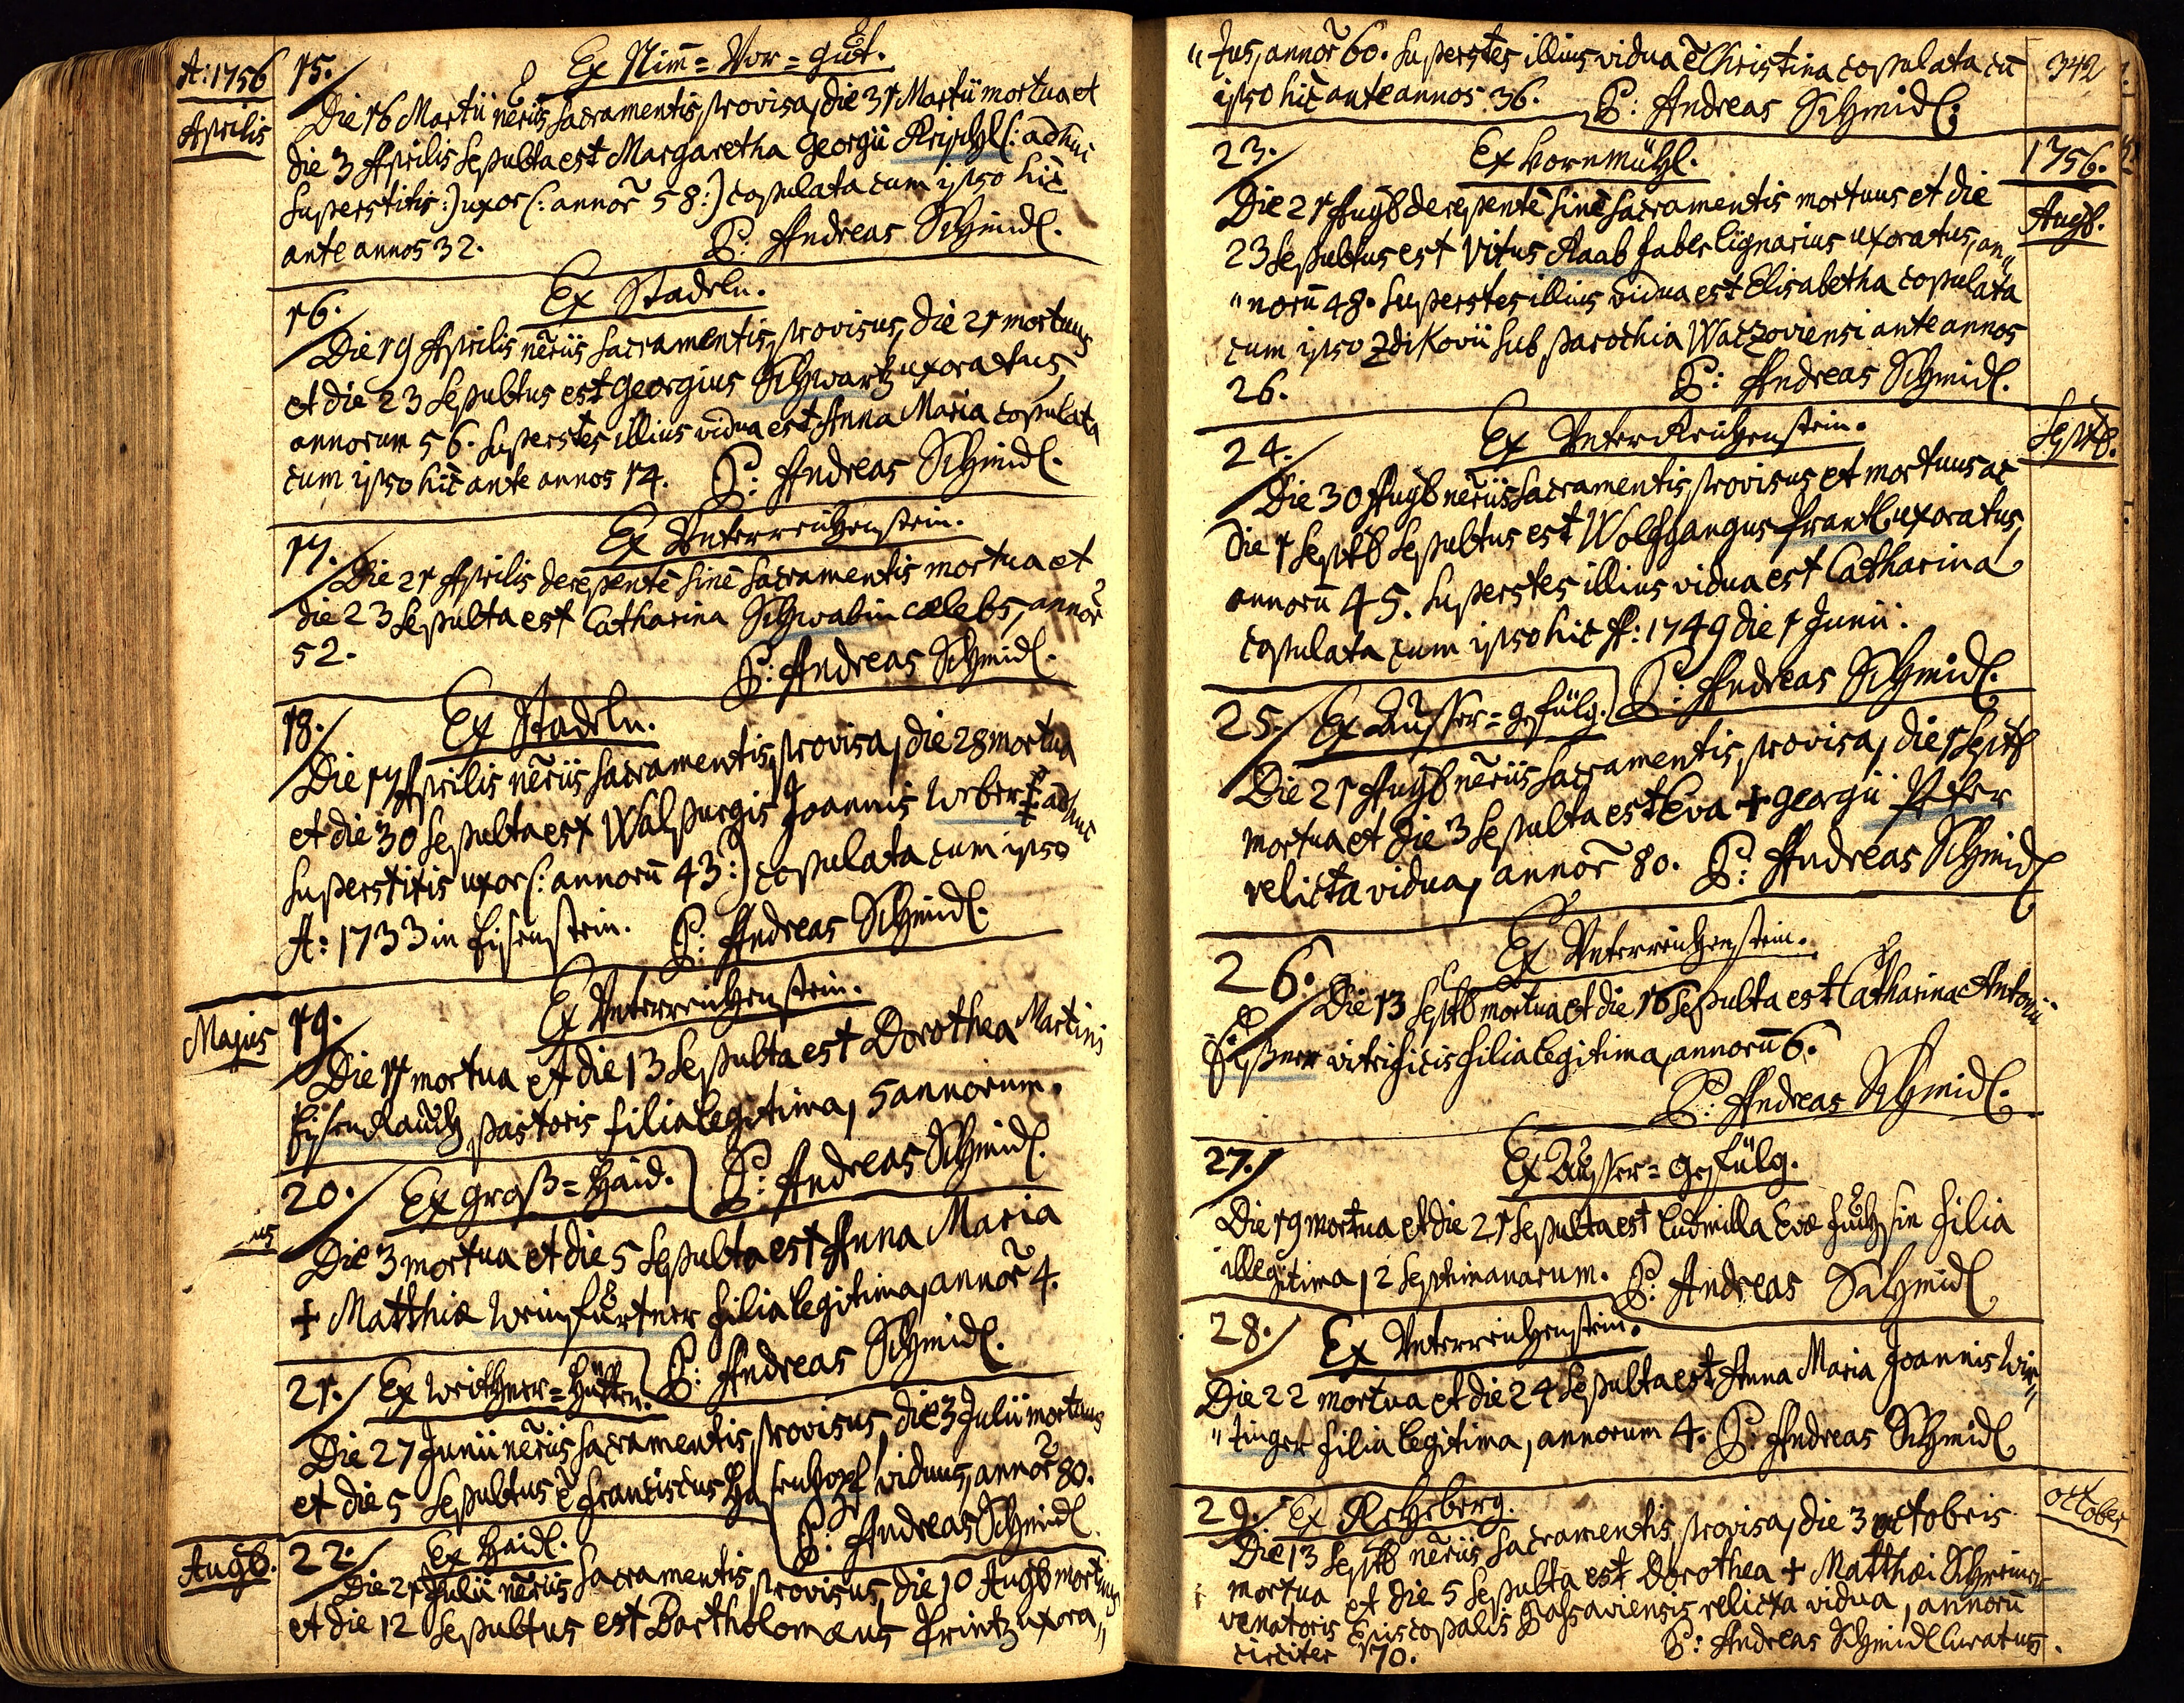 A: 1756
Aprilis
15. Ex Nim̄=Vor=gut.
Die 16 Martii nēriis sacramentis provisa, die 31 Martii mortua et
die 3 Aprilis sepulta est Margaretha Georgii (: adhuc
superstitis :) uxor (: annor̃ 58 :) copulata cum ipso hic
ante annos 32. P: Andreas Schmidl.
16. Ex Stadeln.
Die 19 Aprilis nēriis sacramentis provisus, die 21 mortuus
et die 23 sepultus est Georgius Schwartz uxoratus,
annorum 56. superstes illius vidua est Anna Maria copulata
cum ipso hic ante annos 14. P: Andreas Schmidl.
17. Ex Unterreichenstein.
Die 21 Aprilis derepentè sinè sacramentis mortua et
die 23 sepulta est Catharina Schwabin cælebs, annor̃
52. P: Andreas Schmidl.
18. Ex Stadeln.
Die 17 Aprilis nēriis sacramentis provisa, die 28 mortua
et die 30 sepulta est Walpurgis Joannis Weber (: adhuc
superstitis uxor (: annorū 43 :) copulata cum ipso
A: 1733 in Eisenstein. P: Andreas Schmidl.
Majus
19. Ex Unterreichenstein.
Die 11 mortua et die 13 sepulta est Dorothea Martini
Eisenrauch pastoris filia legitima, 5 annorum.
P: Andreas Schmidl.
20. Ex Groß=Haid.
ius
Die 3 mortua et die 5 sepulta est Anna Maria
+ Matthiæ Weinfurtner filia legitima, annor̃ 4.
P: Andreas Schmidl.
21. Ex =Hütten.
Die 27 Junii nēriis sacramentis provisus, die 3 Julii mortuus
et die 5 sepultus ē Franciscus Hasenhopf viduus, annor̃ 80.
P: Andreas Schmidl.
Augb.
22. Ex Haidl.
Die 21 Julii nēriis sacramentis provisus, die 10 Augb mortuus
et die 12 sepultus est Bartholomæus Printz uxora„
342
„tus, annor̃ 60. superstes illius vidua ē Christina copulata cū
ipso hic ante annos 36. P: Andreas Schmidl.
1756.
Augb.
23. Ex Vornmühl.
Die 21 Augb derepentè sinè sacramentis mortuus et die
23 sepultus est Vitus Raab faber lignarius uxoratus, an„
„norū 48. superstes illius vidua est Elisabetha copulata
cum ipso Zdikovii sub parochia Waczoviensi ante annos
26. P: Andreas Schmidl.
Septb.
24. Ex UnterReichenstein.
Die 30 Augb nēriis sacramentis provisus et mortuus ac
die 1 Septb sepultus est Wolffgangus Prantl uxoratus,
annorū 45. superstes illius vidua est Catharina
copulata cum ipso hic A: 1749 die 1 Junii.
P: Andreas Schmidl.
25. Ex Ausser=gefülg.
Die 21 Augb nēriis sacramentis provisa, die 1 Septb
mortua et die 3 sepulta est Eva + Georgii
relicta vidua, annor̃ 80. P: Andreas Schmidl
26. Ex Unterreichenstein.
Die 13 Septb mortua et die 16 sepulta est Catharina Antonii
vitrificis filia legitima, annorū 6.
P: Andreas Schmidl.
27. Ex Ausser=Gefülg.
Die 19 mortua et die 21 sepulta est Ludmilla Evæ Fuchsin filia
illegitima, 2 septimanarum. P: Andreas Schmidl
28. Ex Unterreichenstein.
Die 22 mortua et die 24 sepulta est Anna Maria Joannis Win„
„tinger filia legitima, annorum 4. P: Andreas Schmidl
October
29. Ex Rehberg.
Die 13 Septb nēriis sacramentis provisa, die 3 octobris
mortua et die 5 sepulta est Dorothea + Matthæi Schreiner
venatoris Episcopalis Passaviensis relicta vidua, annorū
circiter 70. P: Andreas Schmidl Curatus.